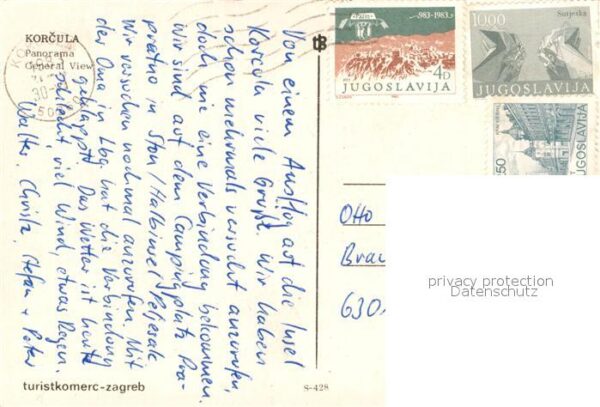 KORČULA
Panorama
General View
Von einem Ausflug auf die Insel
Korcula viele Grüße. Wir haben
schon mehrmals versucht anzurufen,
doch nie eine Verbindung bekommen.
Wir sind auf dem Campingplatz Pra-
pratno in Ston/Halbinsel Peljesac.
Wir versuchen nochmal anzurufen. Mit
der Oma in Lbg hat die Verbindung
geklappt. Das Wetter ist heute
schlecht, viel Wind, etwas Regen.
Walter, Christa, Stefan + Peter
turistkomerc-zagreb
S-428
983-1983
4D
JUGOSLAVIJA
1000
Sutjeska
JUGOSLAVIJA
50
JUGOSLAVIJA
Otto
Brau
630
privacy protection
Datenschutz